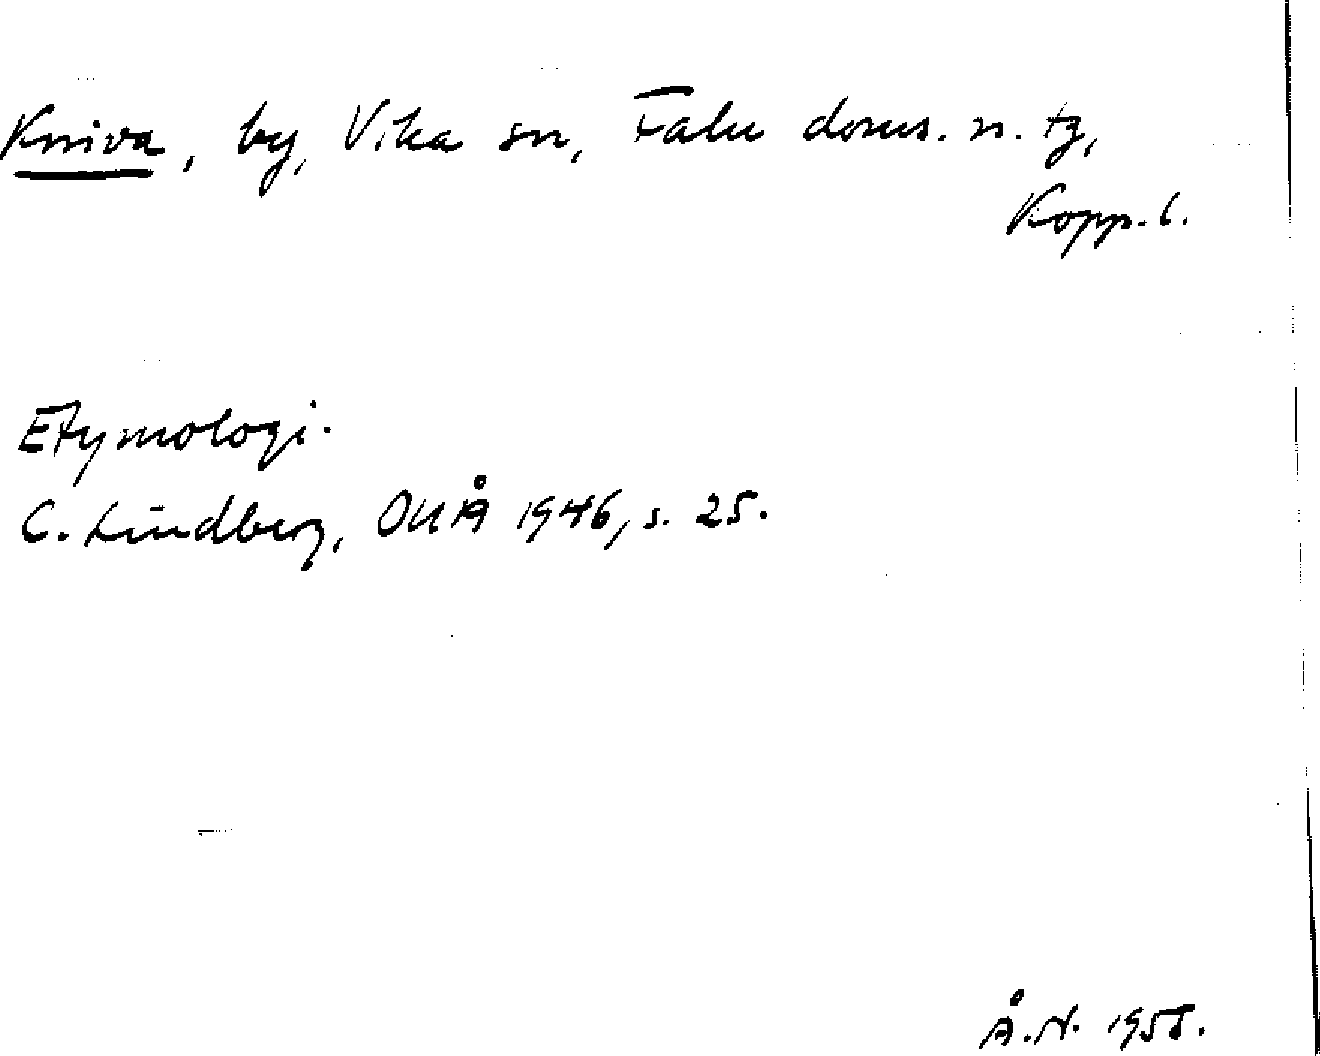 Kniva, by, Vika sn, Falu doms. n. tg,
Kopp. l.
Etymologi.
C. Lindberg, OUÅ 1946, s. 25.
Å. N. 1958.